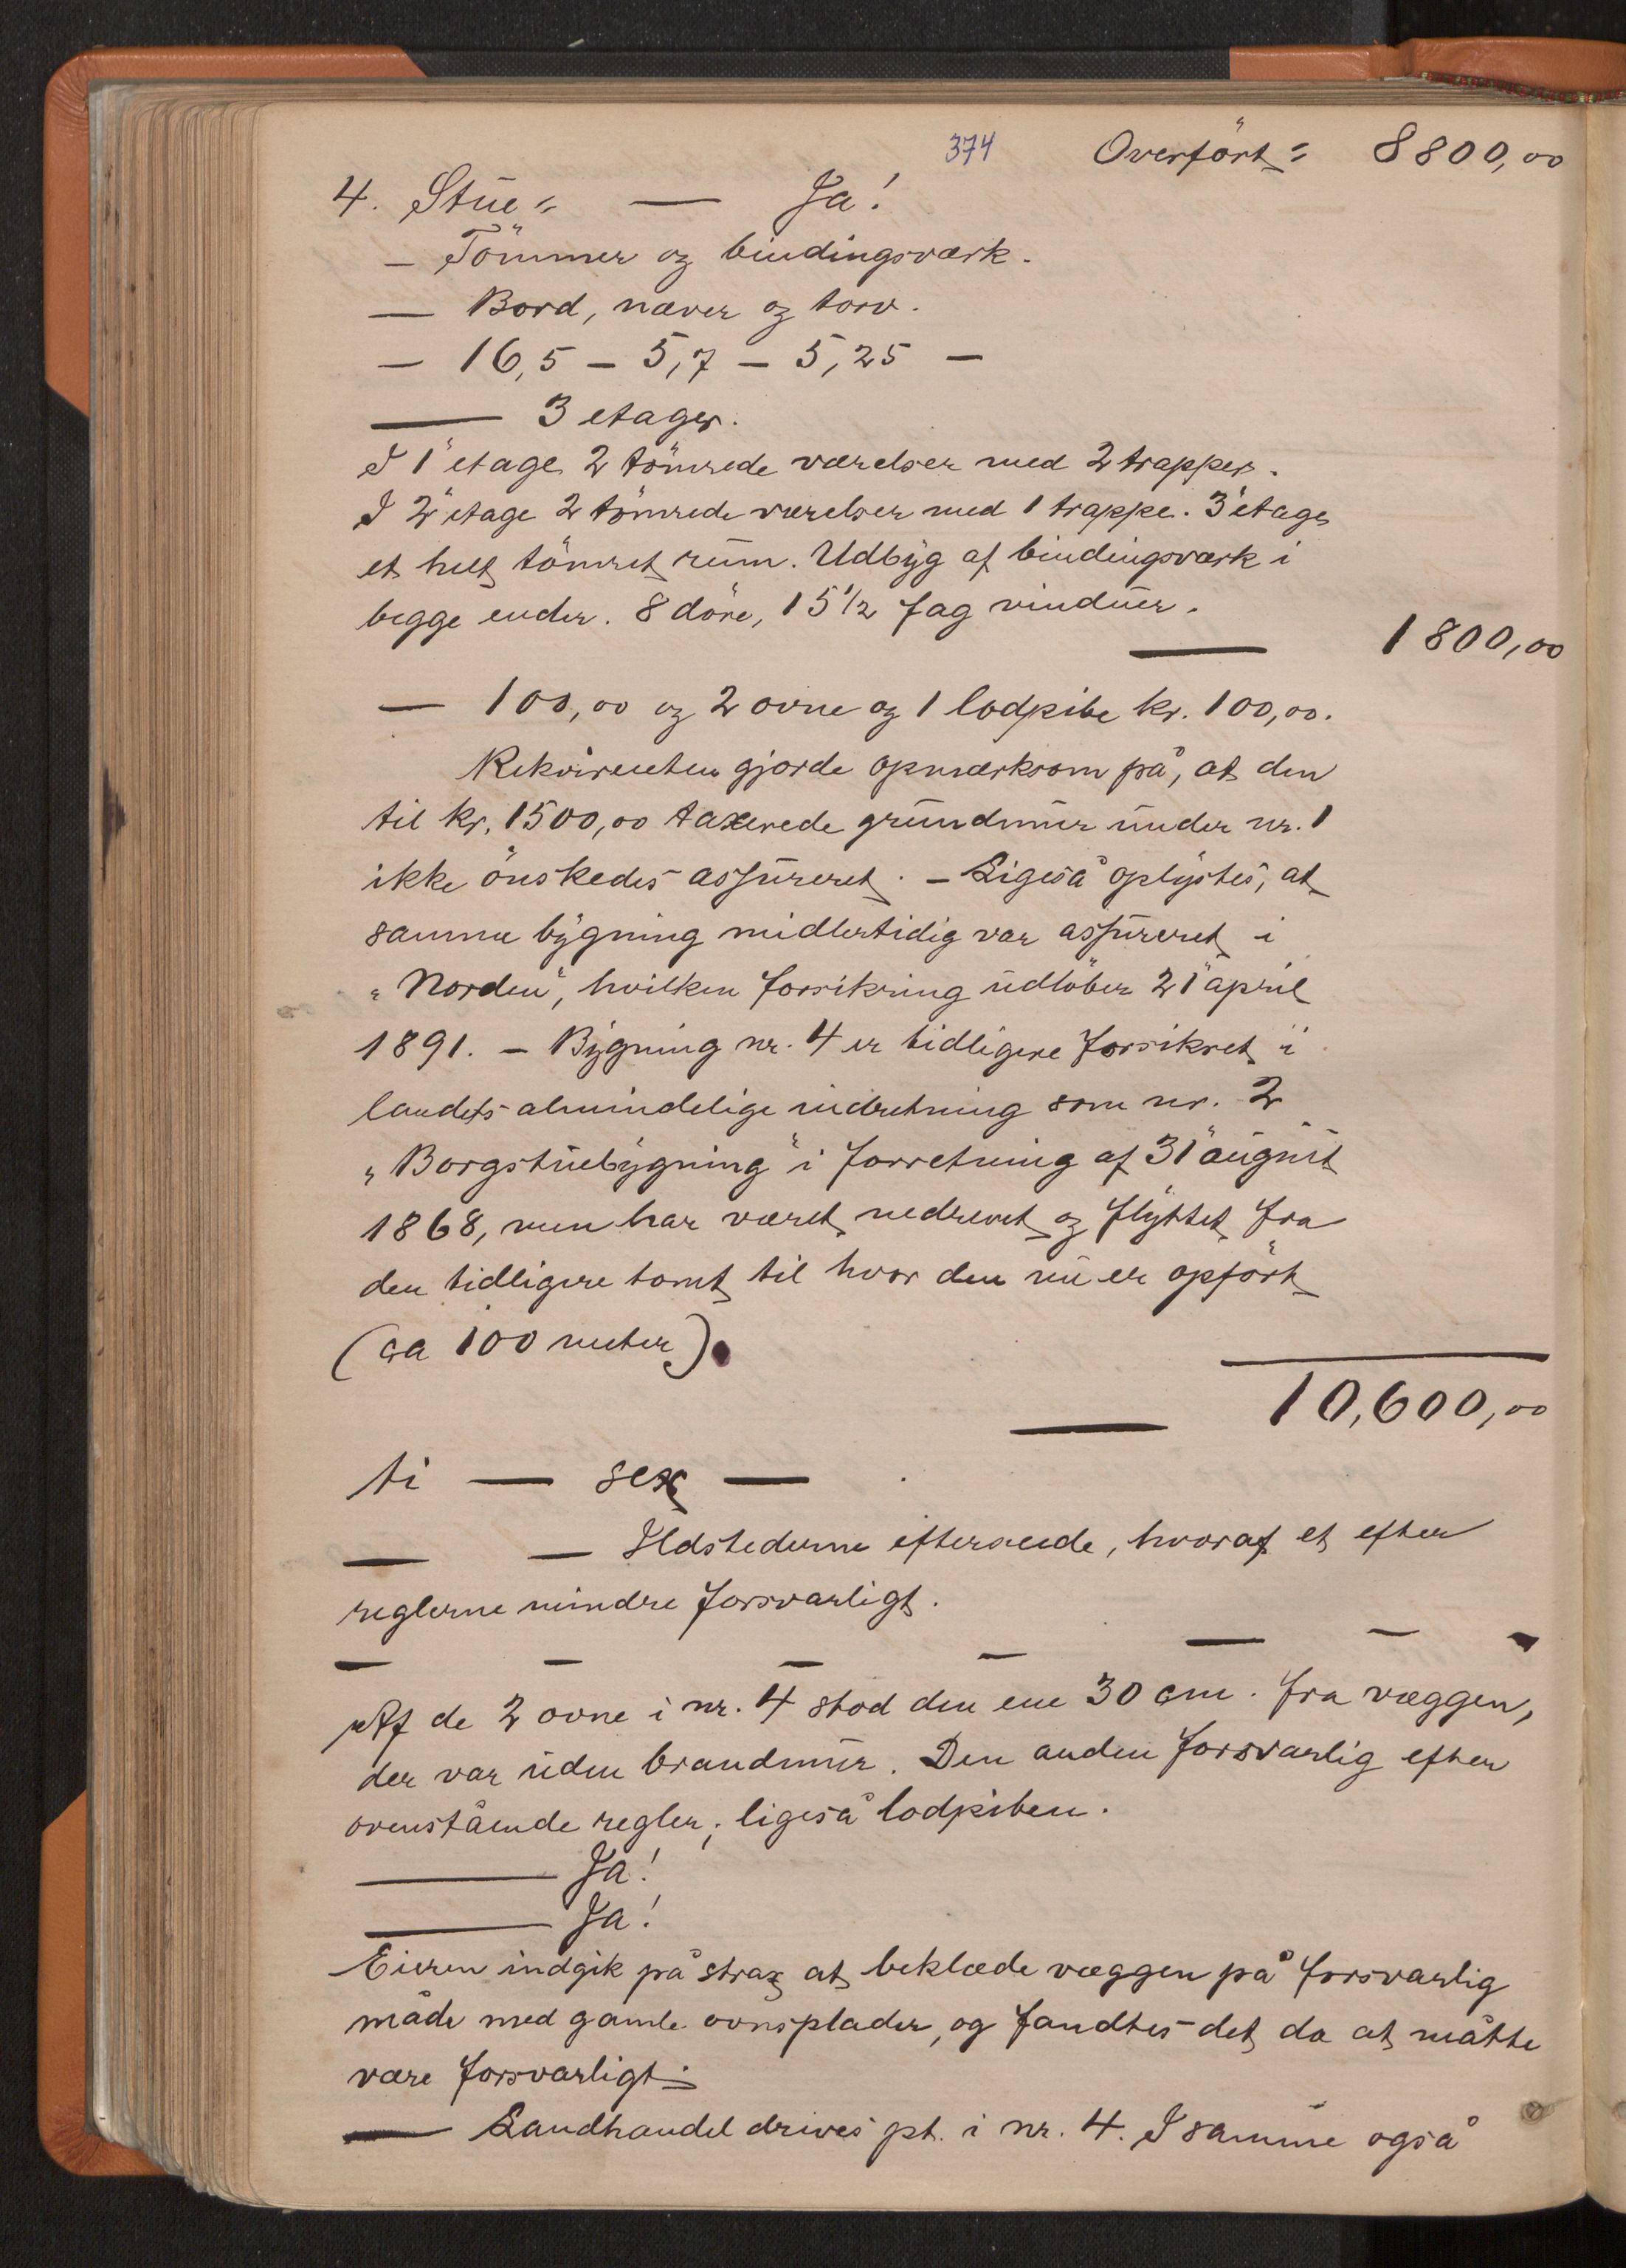 374 Overfört = 8800,00
4. Stue = — Ja!
— Tömmer og bindingsværk.
— Bord, næver og torv.
— 16,5 — 5,7 — 5,25 —
— 3 etager.
I 1' etage 2 tömrede værelser med 2 trapper.
I 2' etage 2 tömrede værelser med 1 trappe. 3' etage
et helt tömret rum. Udbyg af bindingsværk i
begge ender. 8 döre, 15 1/2 fag vinduer.
— 1800,00
— 100,00 og 2 ovne og 1 lodpibe kr. 100,00.
Rekvirenten gjorde opmærksom på, at den
til kr. 1500,00 taxerede grundmur under nr. 1
ikke önskedes assureret. — Ligeså oplystes, at
samme bygning midlertidig var assureret i
"Norden", hvilken forsikring udlöber 21' april
1891. — Bygning nr. 4 er tidligere forsikret i
landets almindelige indretning som nr. 2
"Borgstuebygning" i forretning af 31' august
1868, men har været nedrevet og flyttet fra
den tidligere tomt til hvor den nu er opfört
(ca 100 meter).
— 10,600,00
ti — sex —
— — Ildstederne efterseede, hvoraf et efter
reglerne mindre forsvarligt.
— — — — — — —
Af de 2 ovne i nr. 4 stod den ene 30 cm. fra væggen,
der var uden brandmur. Den anden forsvarlig efter
ovenstående regler; ligeså lodpiben.
— Ja!
— Ja!
Eieren indgik på strax at beklæde væggen på forsvarlig
måde med gamle ovnsplader, og fandtes det da at måtte
være forsvarligt.
— Landhandel drives pt. i nr. 4. I samme også